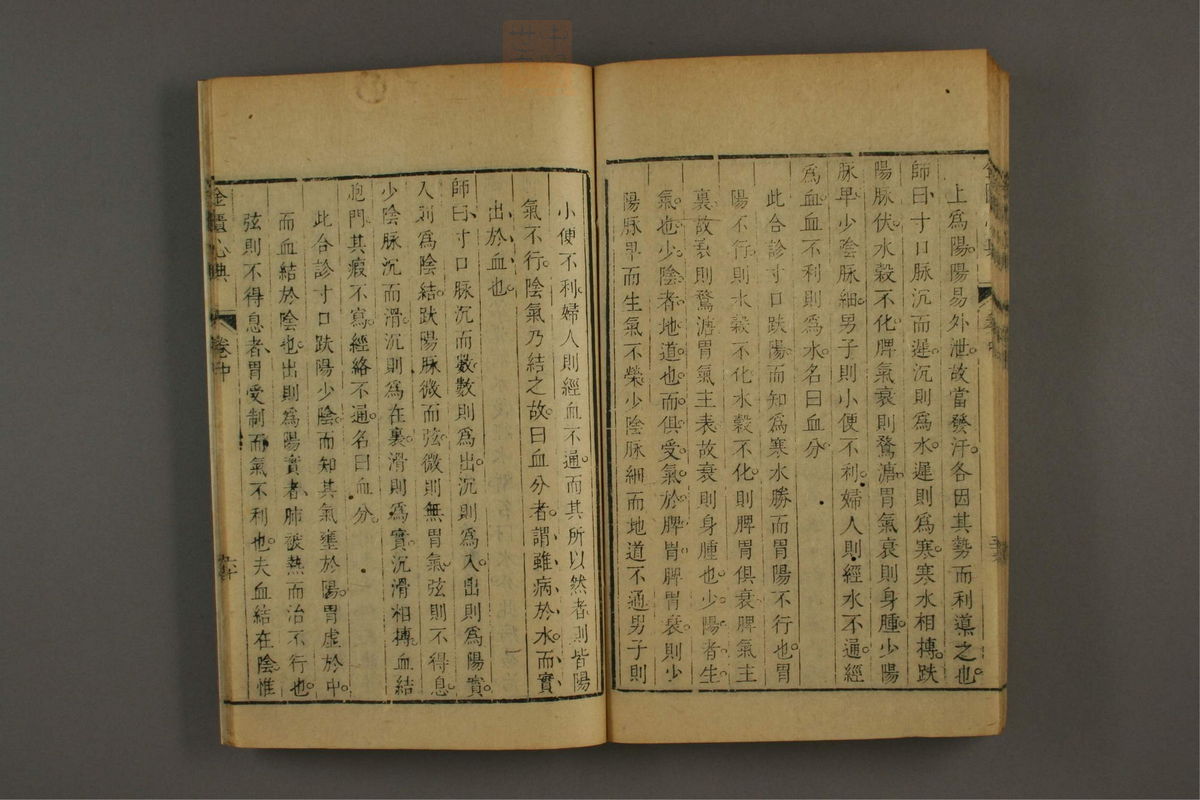 上爲陽陽易外泄故當發汗各因其勢而利導之也
師曰寸口脉沉而遲沉則爲水遲則爲寒寒水相摶趺
陽脉伏水穀不化脾氣衰則鶩溏胃氣衰則身腫少陽
脉卑少陰脉細男子則小便不利婦人則經水不通經
爲血血不利則爲水名曰血分
此合診寸口趺陽而知爲寒水勝而胃陽不行也胃
陽不行則水穀不化水穀不化則脾胃俱衰脾氣主
裏故衰則鶩溏胃氣主表故衰則身腫也少陽者生
氣也少陰者地道也而俱受氣於脾胃脾胃衰則少
陽脉卑而生氣不榮少陰脉細而地道不通男子則
小便不利婦人則經血不通而其所以然者則皆陽
氣不行陰氣乃結之故曰血分者謂雖病於水而實
出於血也
師曰寸口脉沉而數數則爲出沉則爲入出則爲陽實
入則爲陰結趺陽脉微而弦微則無胃氣弦則不得息
少陰脉沉而滑沉則爲在裏滑則爲實沉滑相摶血結
胞門其瘕不寫經絡不通名曰血分
此合診寸口趺陽少陰而知其氣壅於陽胃虛於中
而血結於陰也出則爲陽實者肺被熱而治不行也
弦則不得息者胃受制而氣不利也夫血結在陰惟
金匱心典
卷中